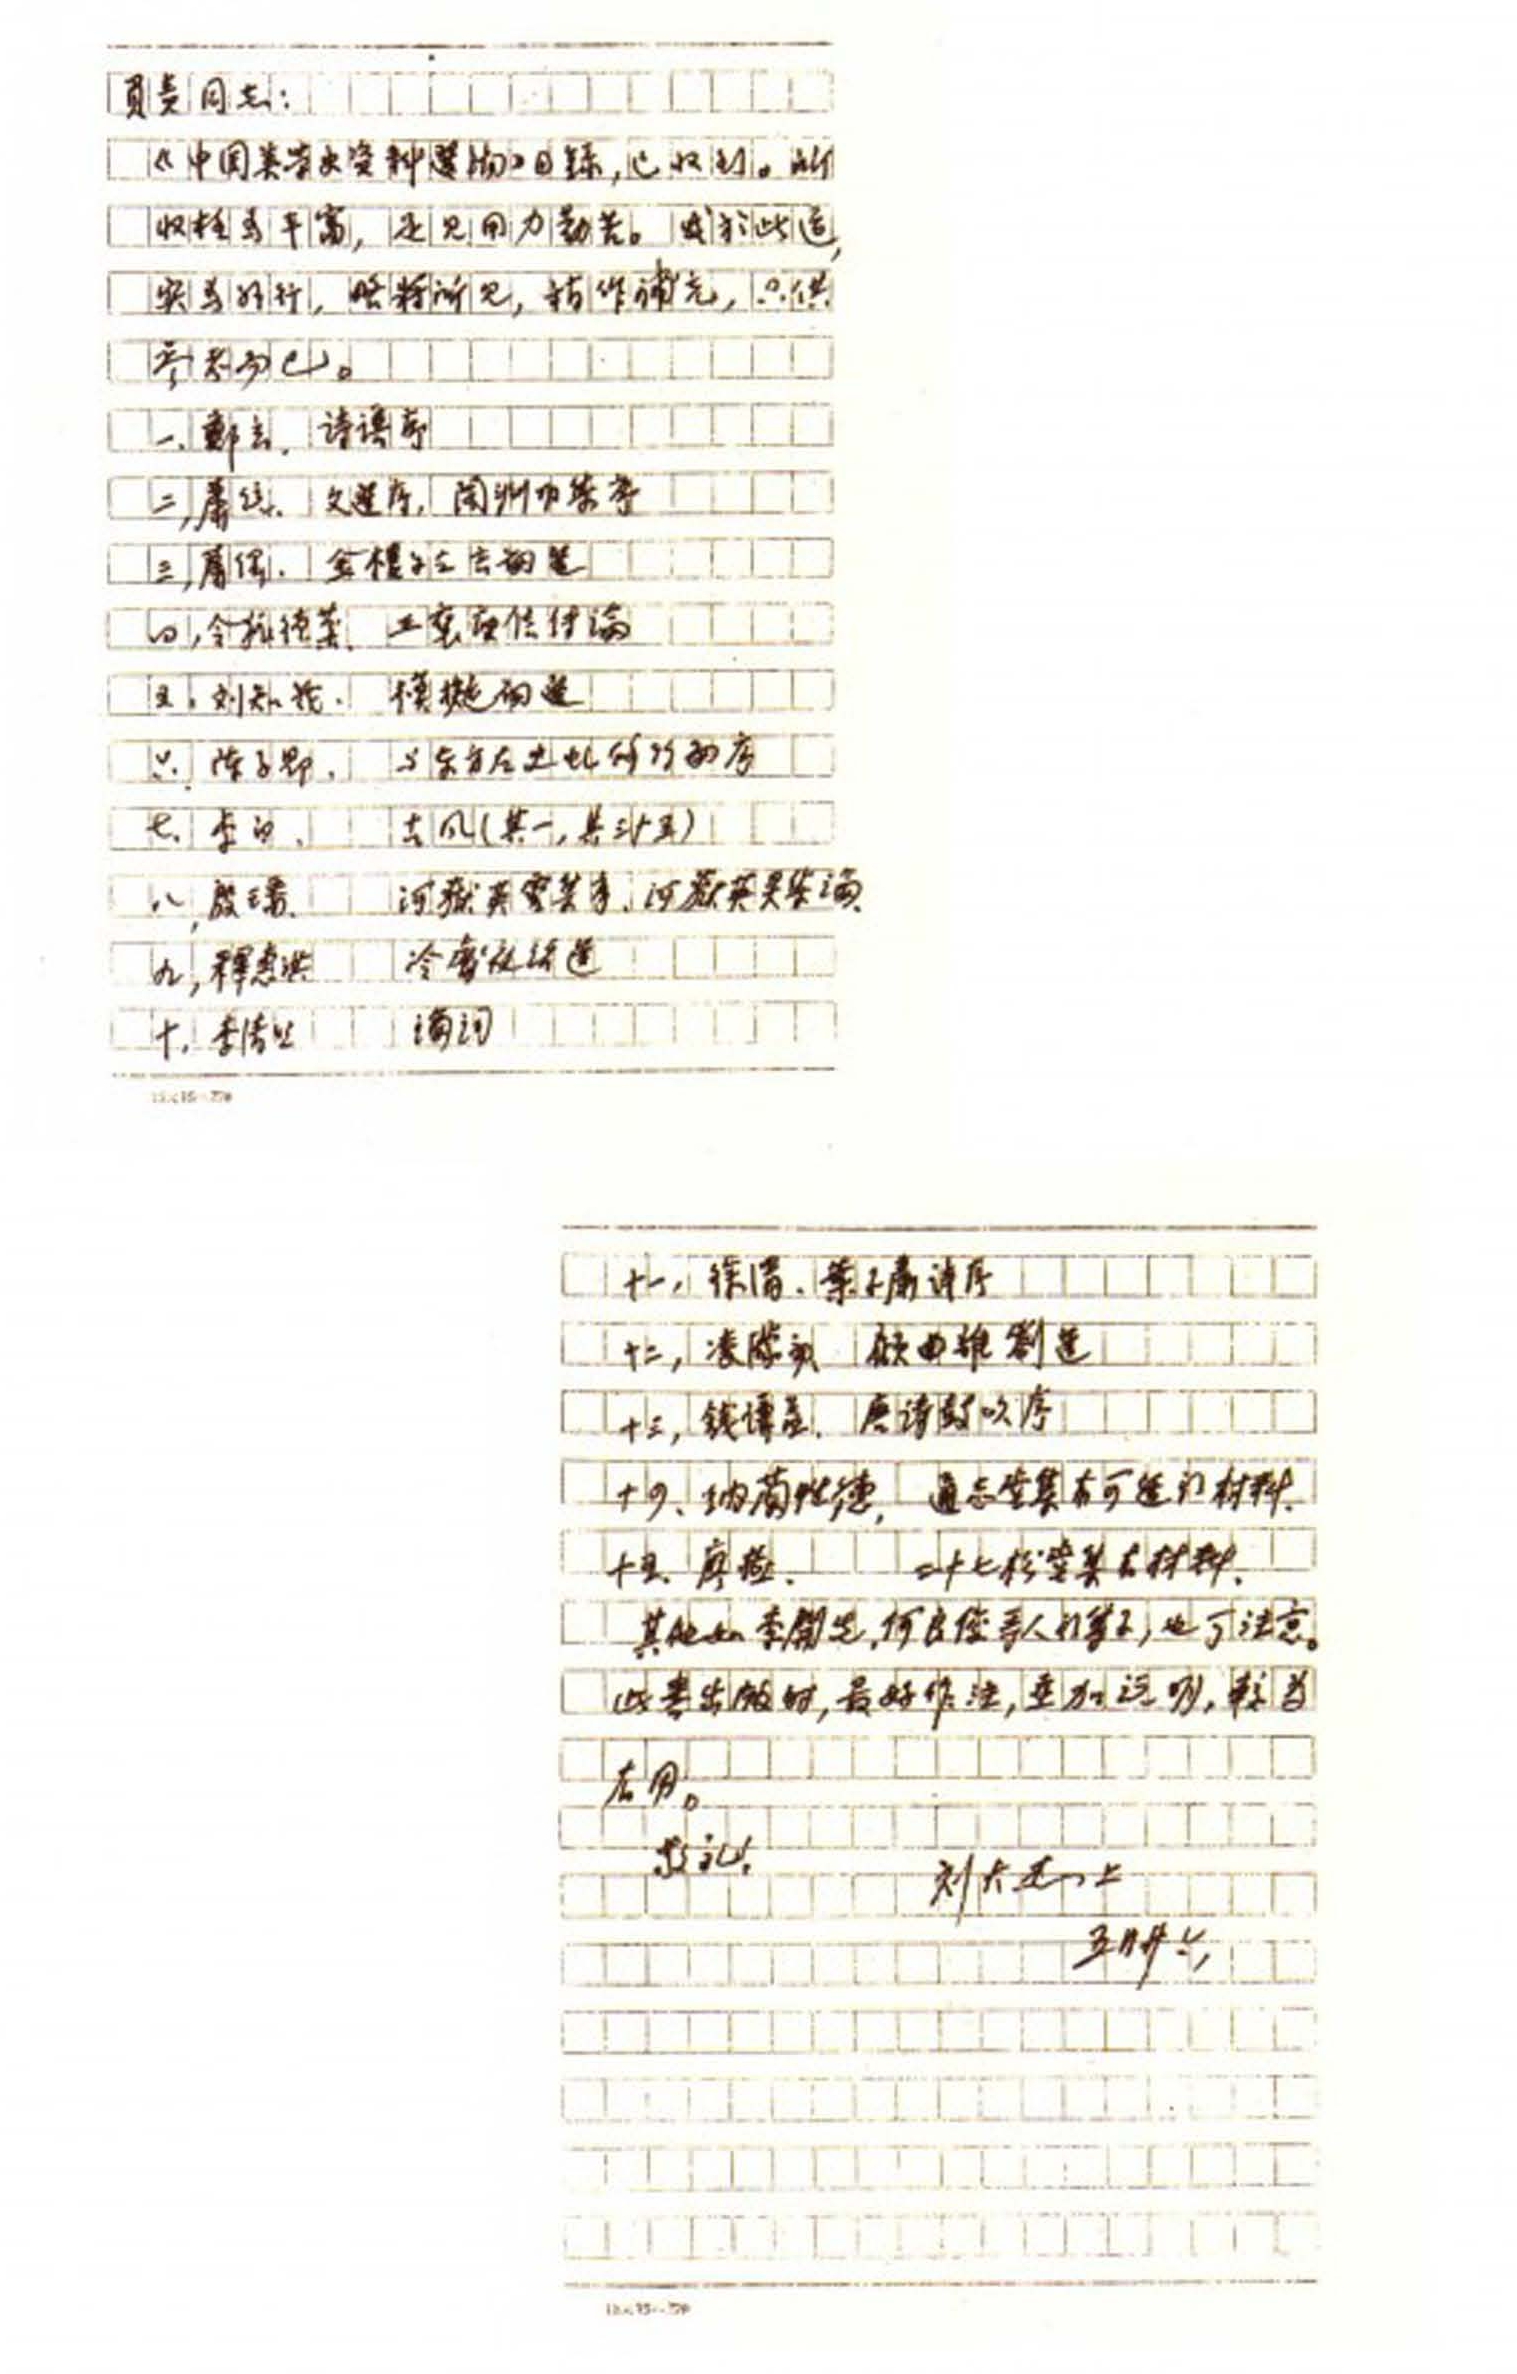 負责同志：
《中国美学史资料选编》目録，已收到。所
收极为丰富，足见用力勤苦。我於此道，
实为外行，略将所见，稍作補充，只供
参考而已。
一、鄭玄．诗谱序
二，蕭统．文選序，陶渊明集序
三，蕭绎．金樓子立言篇选
四，令狐德棻．王褒庾信传論
五．刘知幾．模擬篇选
六．陈子昂．与东方左史虬修竹篇序
七．李白．古风（其一，其三十五）
八，殷璠．河嶽英灵集序．河嶽英灵集論．
九，釋惠洪 冷齋夜话选
十．李清照 論词
十一，徐渭．葉子肅詩序
十二，凌濛初 顧曲雜劄选
十三，钱謙益．唐诗鼓吹序
十四、纳蘭性德，通志堂集有可选的材料．
十五．廖燕．二十七松堂集有材料．
其他如李開先，何良俊等人的集子，也可注意。
此書出版时，最好作注，重加说明，较为
有用。
敬礼．
刘大杰上
五月廿六，